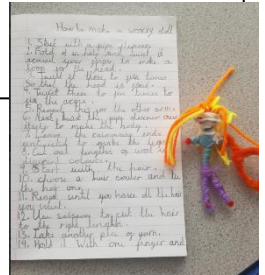 How to make a worry doll
1. Start with a pipe cleaner
2. Fold it in half and twist it
around your finger to make a
loop for the head.
3. Twist it three to five times
so that the head is
4. Twist them to five times to
for the arms.
5. Repeat this on the other arm.
6. Next, bend the pipe cleaner over
to make the body.
7. Leave the remaining ends
to make the legs
8. Cut out lengths of wool in
different colours.
9. Start with the hair.
10. choose a hair colour and tie
the hair on.
11. Repeat until you have all the hair
you want.
12. Use to cut the hair
to the right length.
13. Take another piece of yarn.
14. Hold it with one finger and